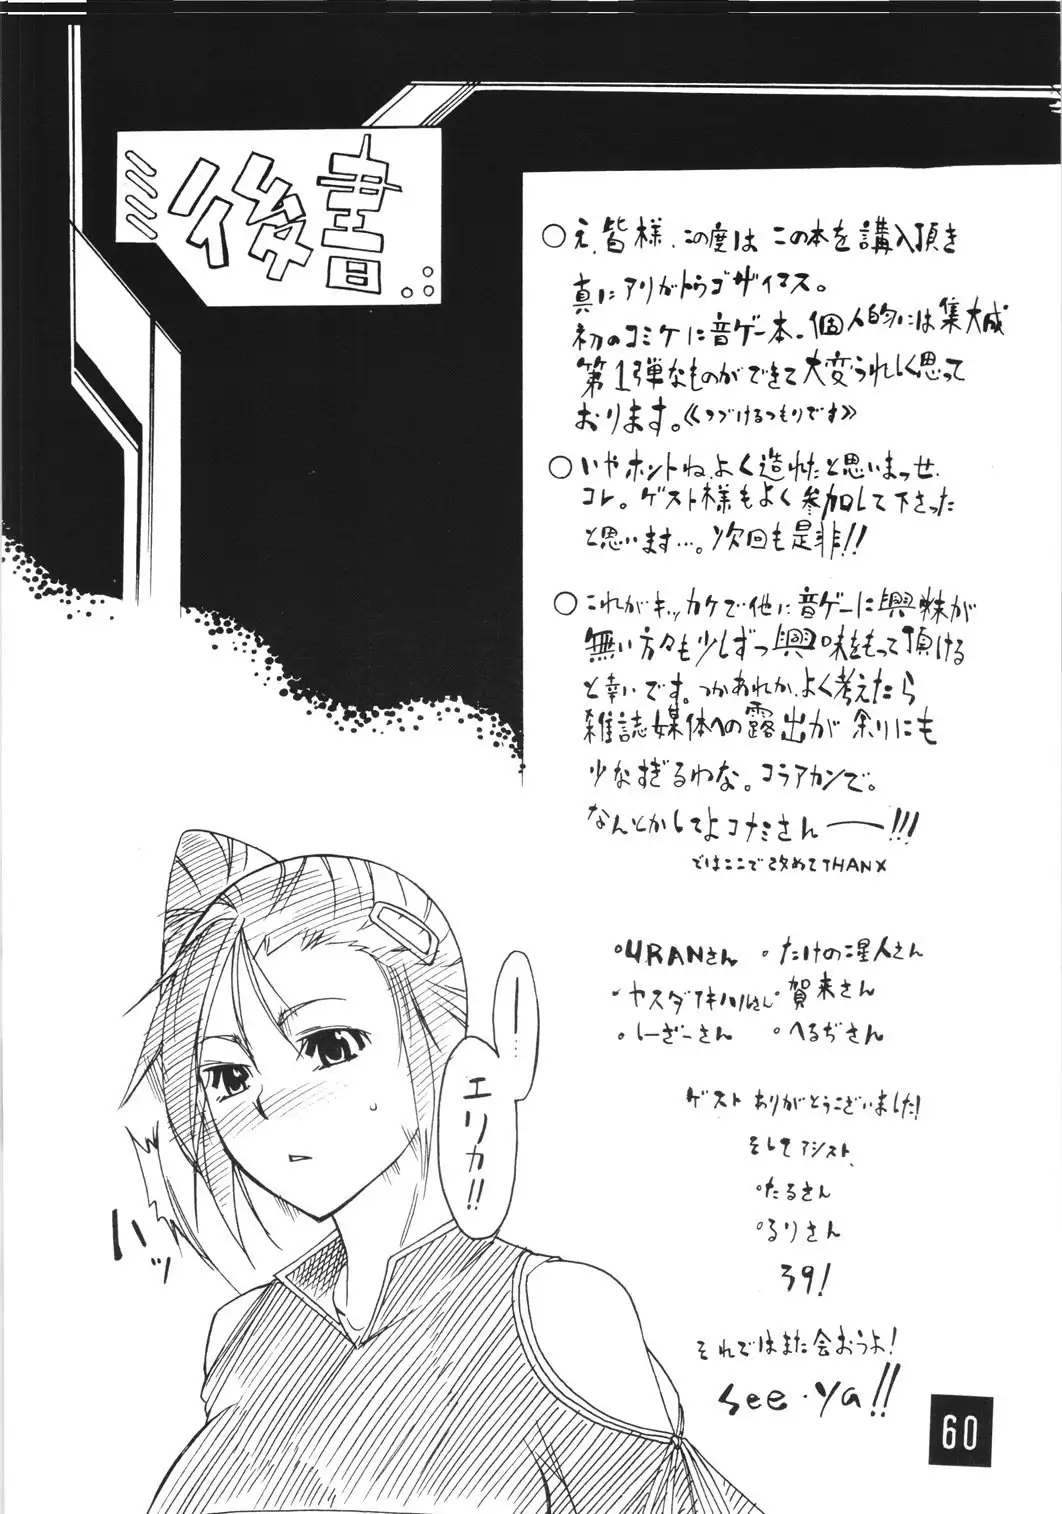 後書
○え、皆様、この度はこの本を講入頂き
真にアリがトウゴザイマス。
初のコミケに音ゲー本。個人的には集大成
第1弾なものができて大変うれしく思って
おります。《つづけるつもりです》
○いやホントね、よく造れたと思いまっせ、
コレ。ゲスト様もよく参加して下さった
と思います…。次回も是非!!
○これがキッカケで他に音ゲーに興味が
無い方々も少しずつ興味をもって頂ける
と幸いです。つかあれか、よく考えたら
雑誌媒体への露出が余りにも
少なすぎるわな。コラアカンで。
なんとかしてよコナミさんーー!!!
ではここで改めてTHANX
・URANさん ・たけの星人さん
・ヤスダアキハルさん ・賀来さん
・しーざーさん ・へるぢさん
ゲストありがとうございました!
そしてアシスト、
・たるさん
・るりさん
39!
それではまた会おうよ!
see・ya!!
ー…
エリカ!!
ハッ
60